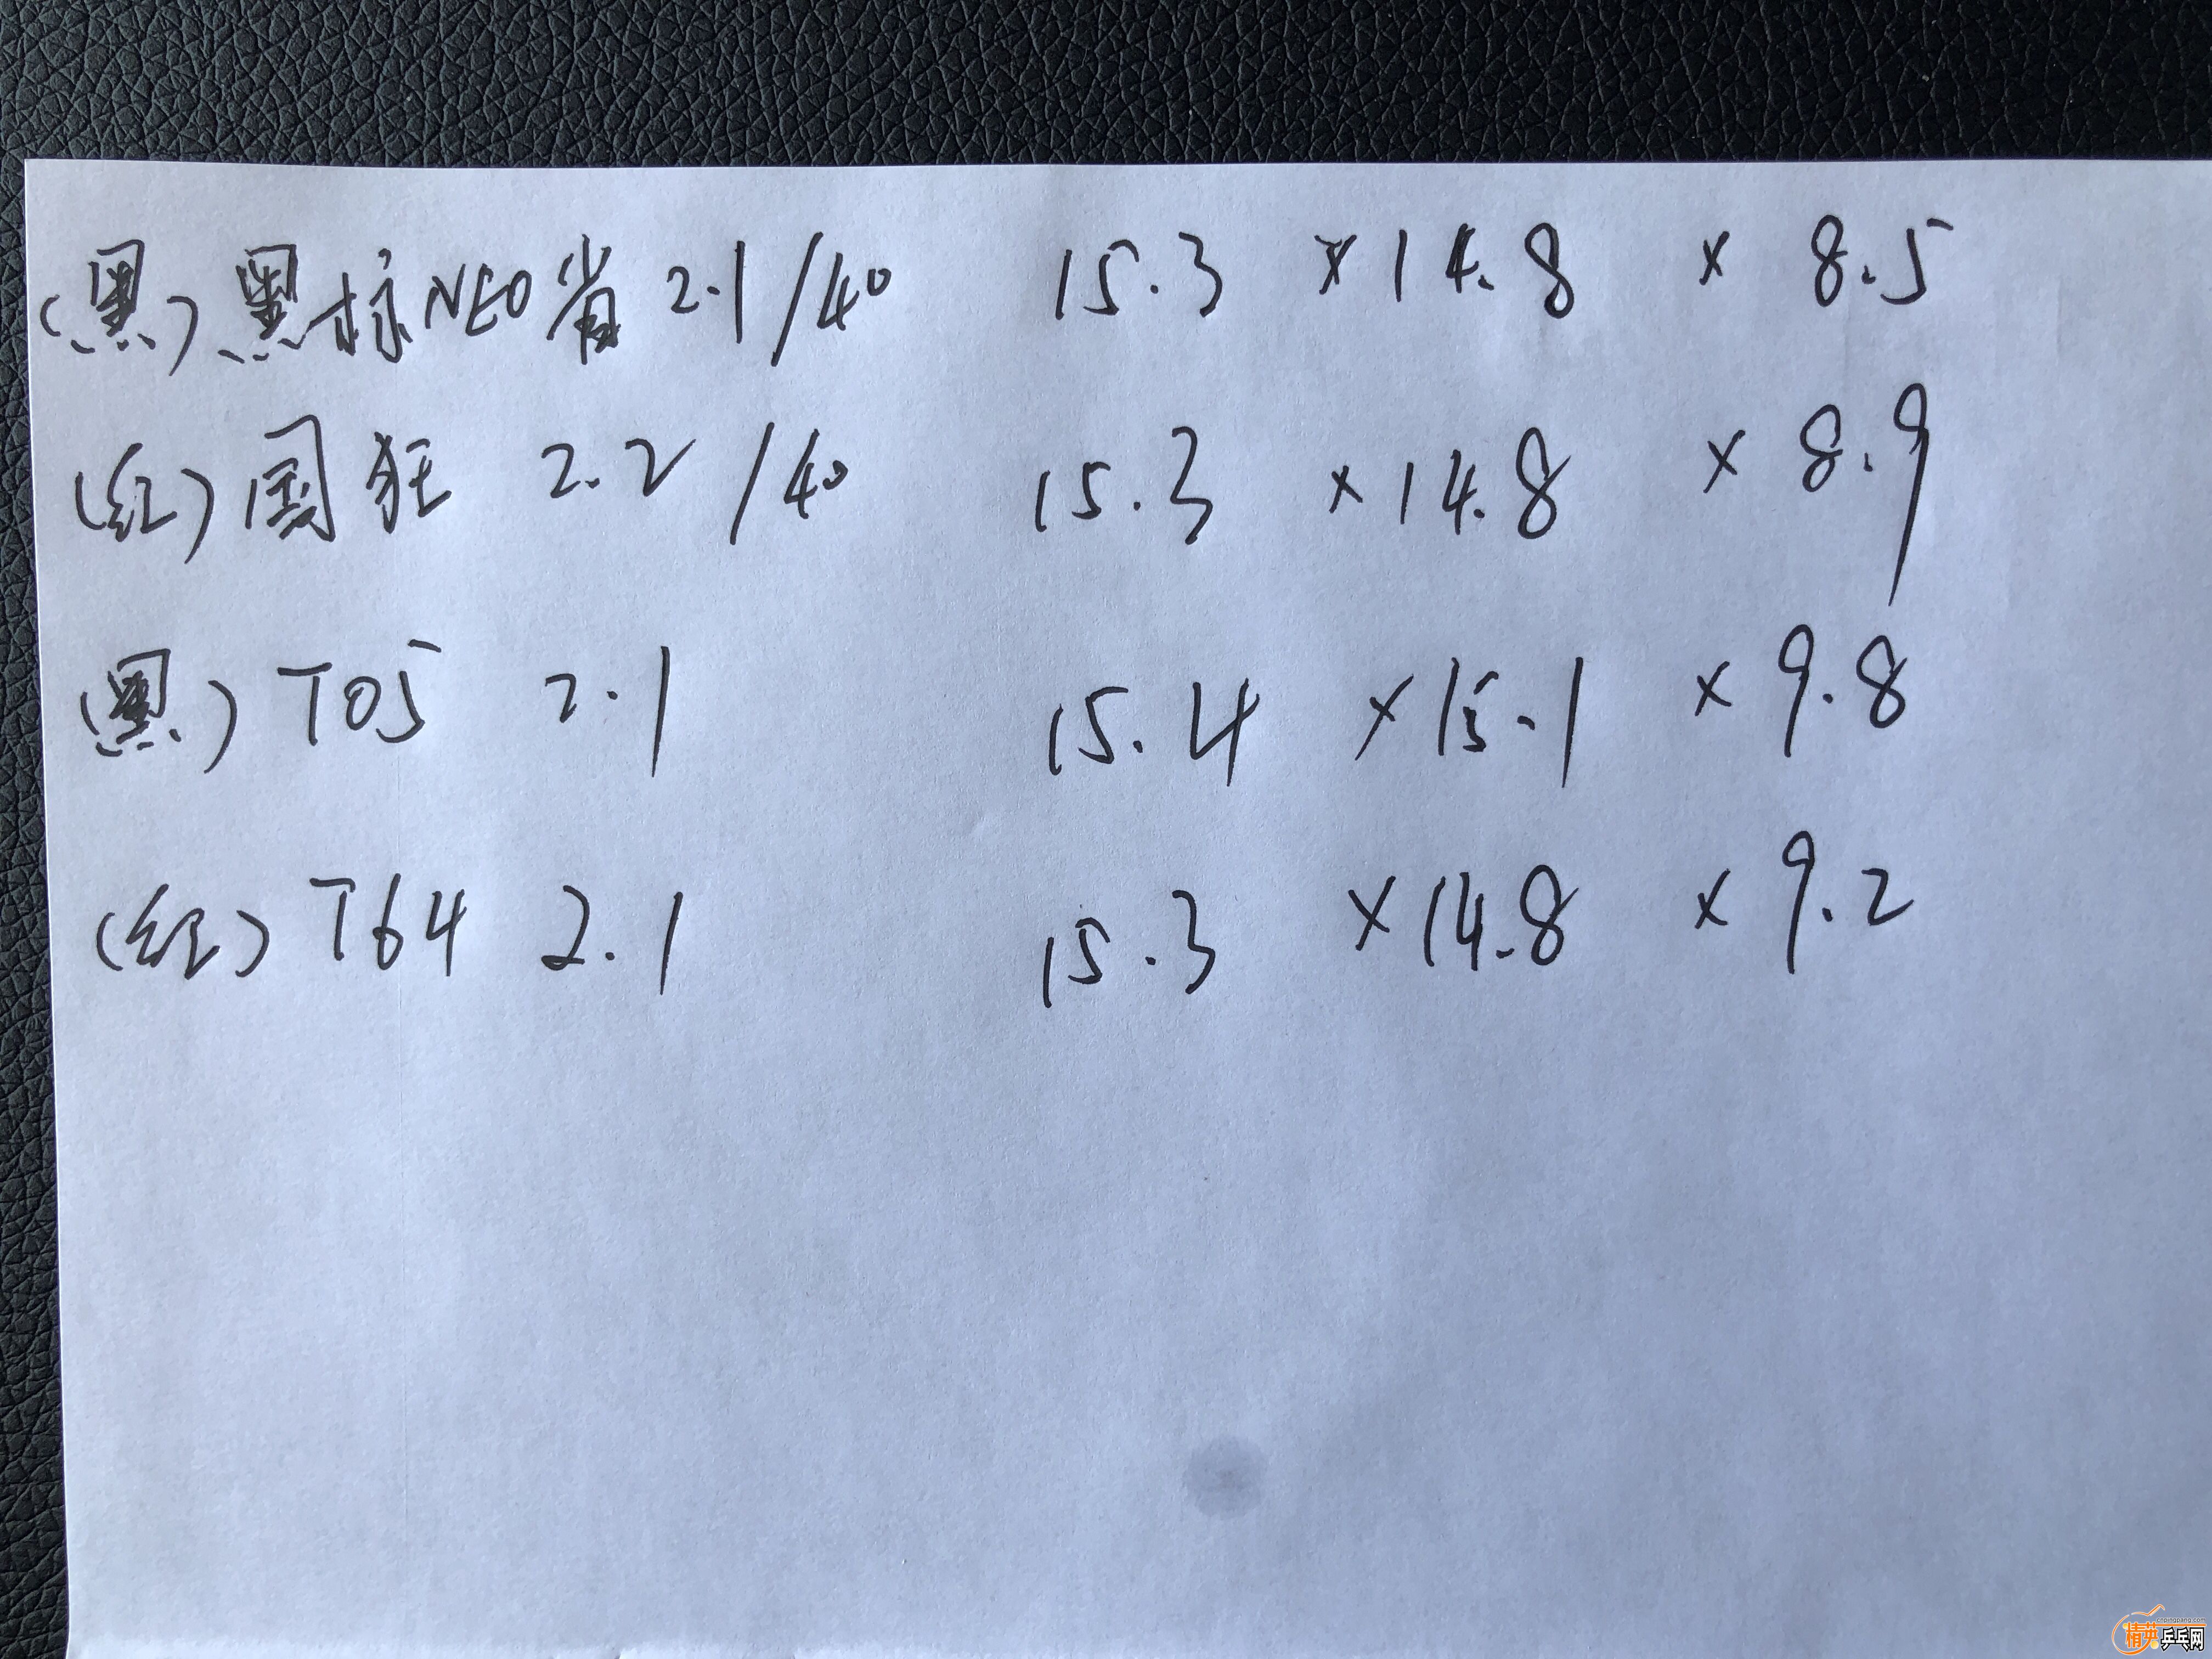 (黑)黑标NEO省 2.1/40 15.3 × 14.8 × 8.5
(红)国狂 2.2/40 15.3 × 14.8 × 8.9
(黑) T05 2.1 15.4 × 15.1 × 9.8
(红) T64 2.1 15.3 × 14.8 × 9.2
cnpingpang.com
精英乒乓网